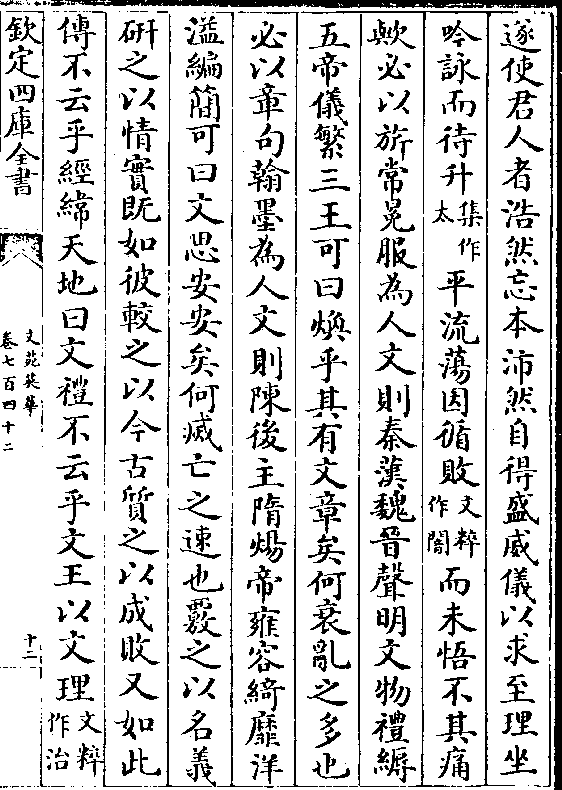 遂使君人者浩然忘本沛然自得盛威儀以求至理坐
吟詠而待升集作太平流蕩因循敗文粹作闇而未悟不其痛
歟必以旂常冕服為人文則秦漢魏晉聲明文物禮縟
五帝儀繁三王可曰煥乎其有文章矣何衰亂之多也
必以章句翰墨為人文則陳後主隋煬帝雍容綺靡洋
溢編簡可曰文思安安矣何滅亡之速也覈之以名義
研之以情實既如彼較之以今古質之以成敗又如此
傳不云乎經緯天地曰文禮不云乎文王以文理文粹作治
欽定四庫全書
文苑英華
卷七百四十二
十二